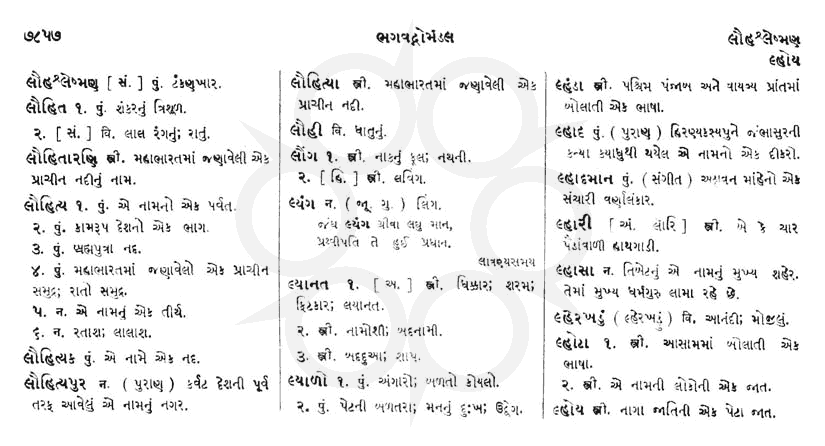 ૭૮૫૭
ભગવદ્ગોમંડલ
લૌહશ્લેષ્મણ
લ્હોય
લૌહશ્લેષ્મણ [ સં. ] પું. ટંકણખાર.
લૌહિત ૧. પું. શંકરનું ત્રિશૂળ.
૨. [ સં. ] વિ. લાલ રંગનું; રાતું.
લૌહિતારણિ સ્ત્રી. મહાભારતમાં જણાવેલી એક
પ્રાચીન નદીનું નામ.
લૌહિત્ય ૧. પું. એ નામનો એક પર્વત.
૨. પું. કામરૂપ દેશનો એક ભાગ.
૩. પું. બ્રહ્મપુત્રા નદ.
૪. પું. મહાભારતમાં જણાવેલો એક પ્રાચીન
સમુદ્ર; રાતો સમુદ્ર.
૫. ન. એ નામનું એક તીર્થ.
૬. ન. રતાશ; લાલાશ.
લૌહિત્યક પું. એ નામે એક નદ.
લૌહિત્યપુર ન. ( પુરાણ ) કર્વટ દેશની પૂર્વ
તરફ આવેલું એ નામનું નગર.
લૌહિત્યા સ્ત્રી. મહાભારતમાં જણાવેલી એક
પ્રાચીન નદી.
લૌહી વિ. ધાતુનું.
લૌંગ ૧. સ્ત્રી. નાકનું ફૂલ; નથની.
૨. [ હિં. ] સ્ત્રી. લવિંગ.
લ્યંગ ન. ( જૂ. ગુ. ) લિંગ.
જંઘ લ્યંગ ગ્રીવા લઘુ માન,
પ્રથ્વીપતિ તે હુઈ પ્રધાન.
લાવણ્યસમય
લ્યાનત ૧. [ અ. ] સ્ત્રી. ધિક્કાર; શરમ;
ફિટકાર; લયાનત.
૨. સ્ત્રી. નામોશી; બદનામી.
૩. સ્ત્રી. બદદુઆ; શાપ.
લ્યાળો ૧. પું. અંગારો; બળતો કોયલો.
૨. પું. પેટની બળતરા; મનનું દુઃખ; ઉદ્વેગ.
લ્હુંડા સ્ત્રી. પશ્ચિમ પંજાબ અને વાયવ્ય પ્રાંતમાં
બોલાતી એક ભાષા.
લ્હાદ પું. ( પુરાણ ) હિરણ્યકશ્યપુને જંભાસુરની
કન્યા કયાધુથી થયેલ એ નામનો એક દીકરો.
લ્હાદમાન પું. ( સંગીત ) માંહેનો એક
સંચારી વર્ણાલંકાર.
લ્હારી [ અં. લૉરિ ] સ્ત્રી. બે કે ચાર
પૈડાંવાળી હાથગાડી.
લ્હાસા ન. તિબેટનું એ નામનું મુખ્ય શહેર.
તેમાં મુખ્ય ધર્મગુરુ લામા રહે છે.
લ્હેરખડું ( લ્હેરખડું ) વિ. આનંદી; મોજીલું.
લ્હોટા ૧. સ્ત્રી. આસામમાં બોલાતી એક
ભાષા.
૨. સ્ત્રી. એ નામની લોકોની એક જાત.
લ્હોય સ્ત્રી. નાગા જાતિની એક પેટા જાત.